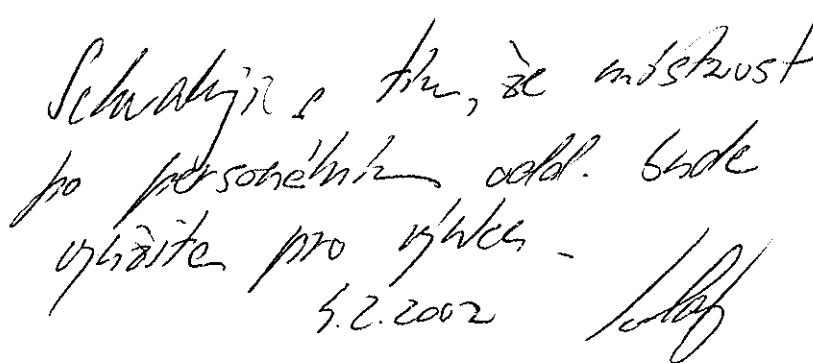 Schvaluji s tím, že místnost
po personálním odd. bude
využita pro výuku.
5.2.2002